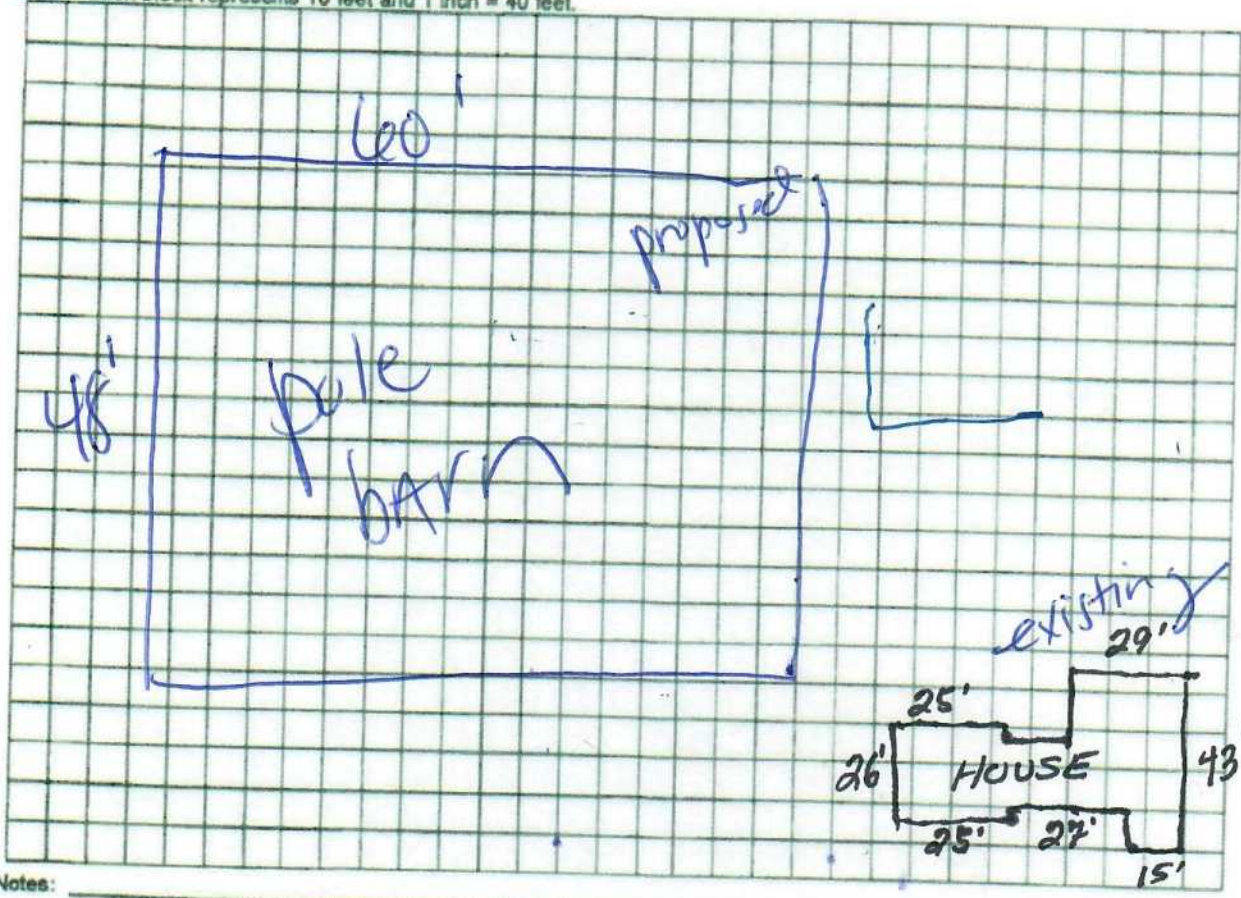 block represents 10 feet and 1 inch = 40 feet.
60'
proposed
48'
pole
bArn
existing
29'
25'
26'
HOUSE
43
25'
27'
15'
Notes: